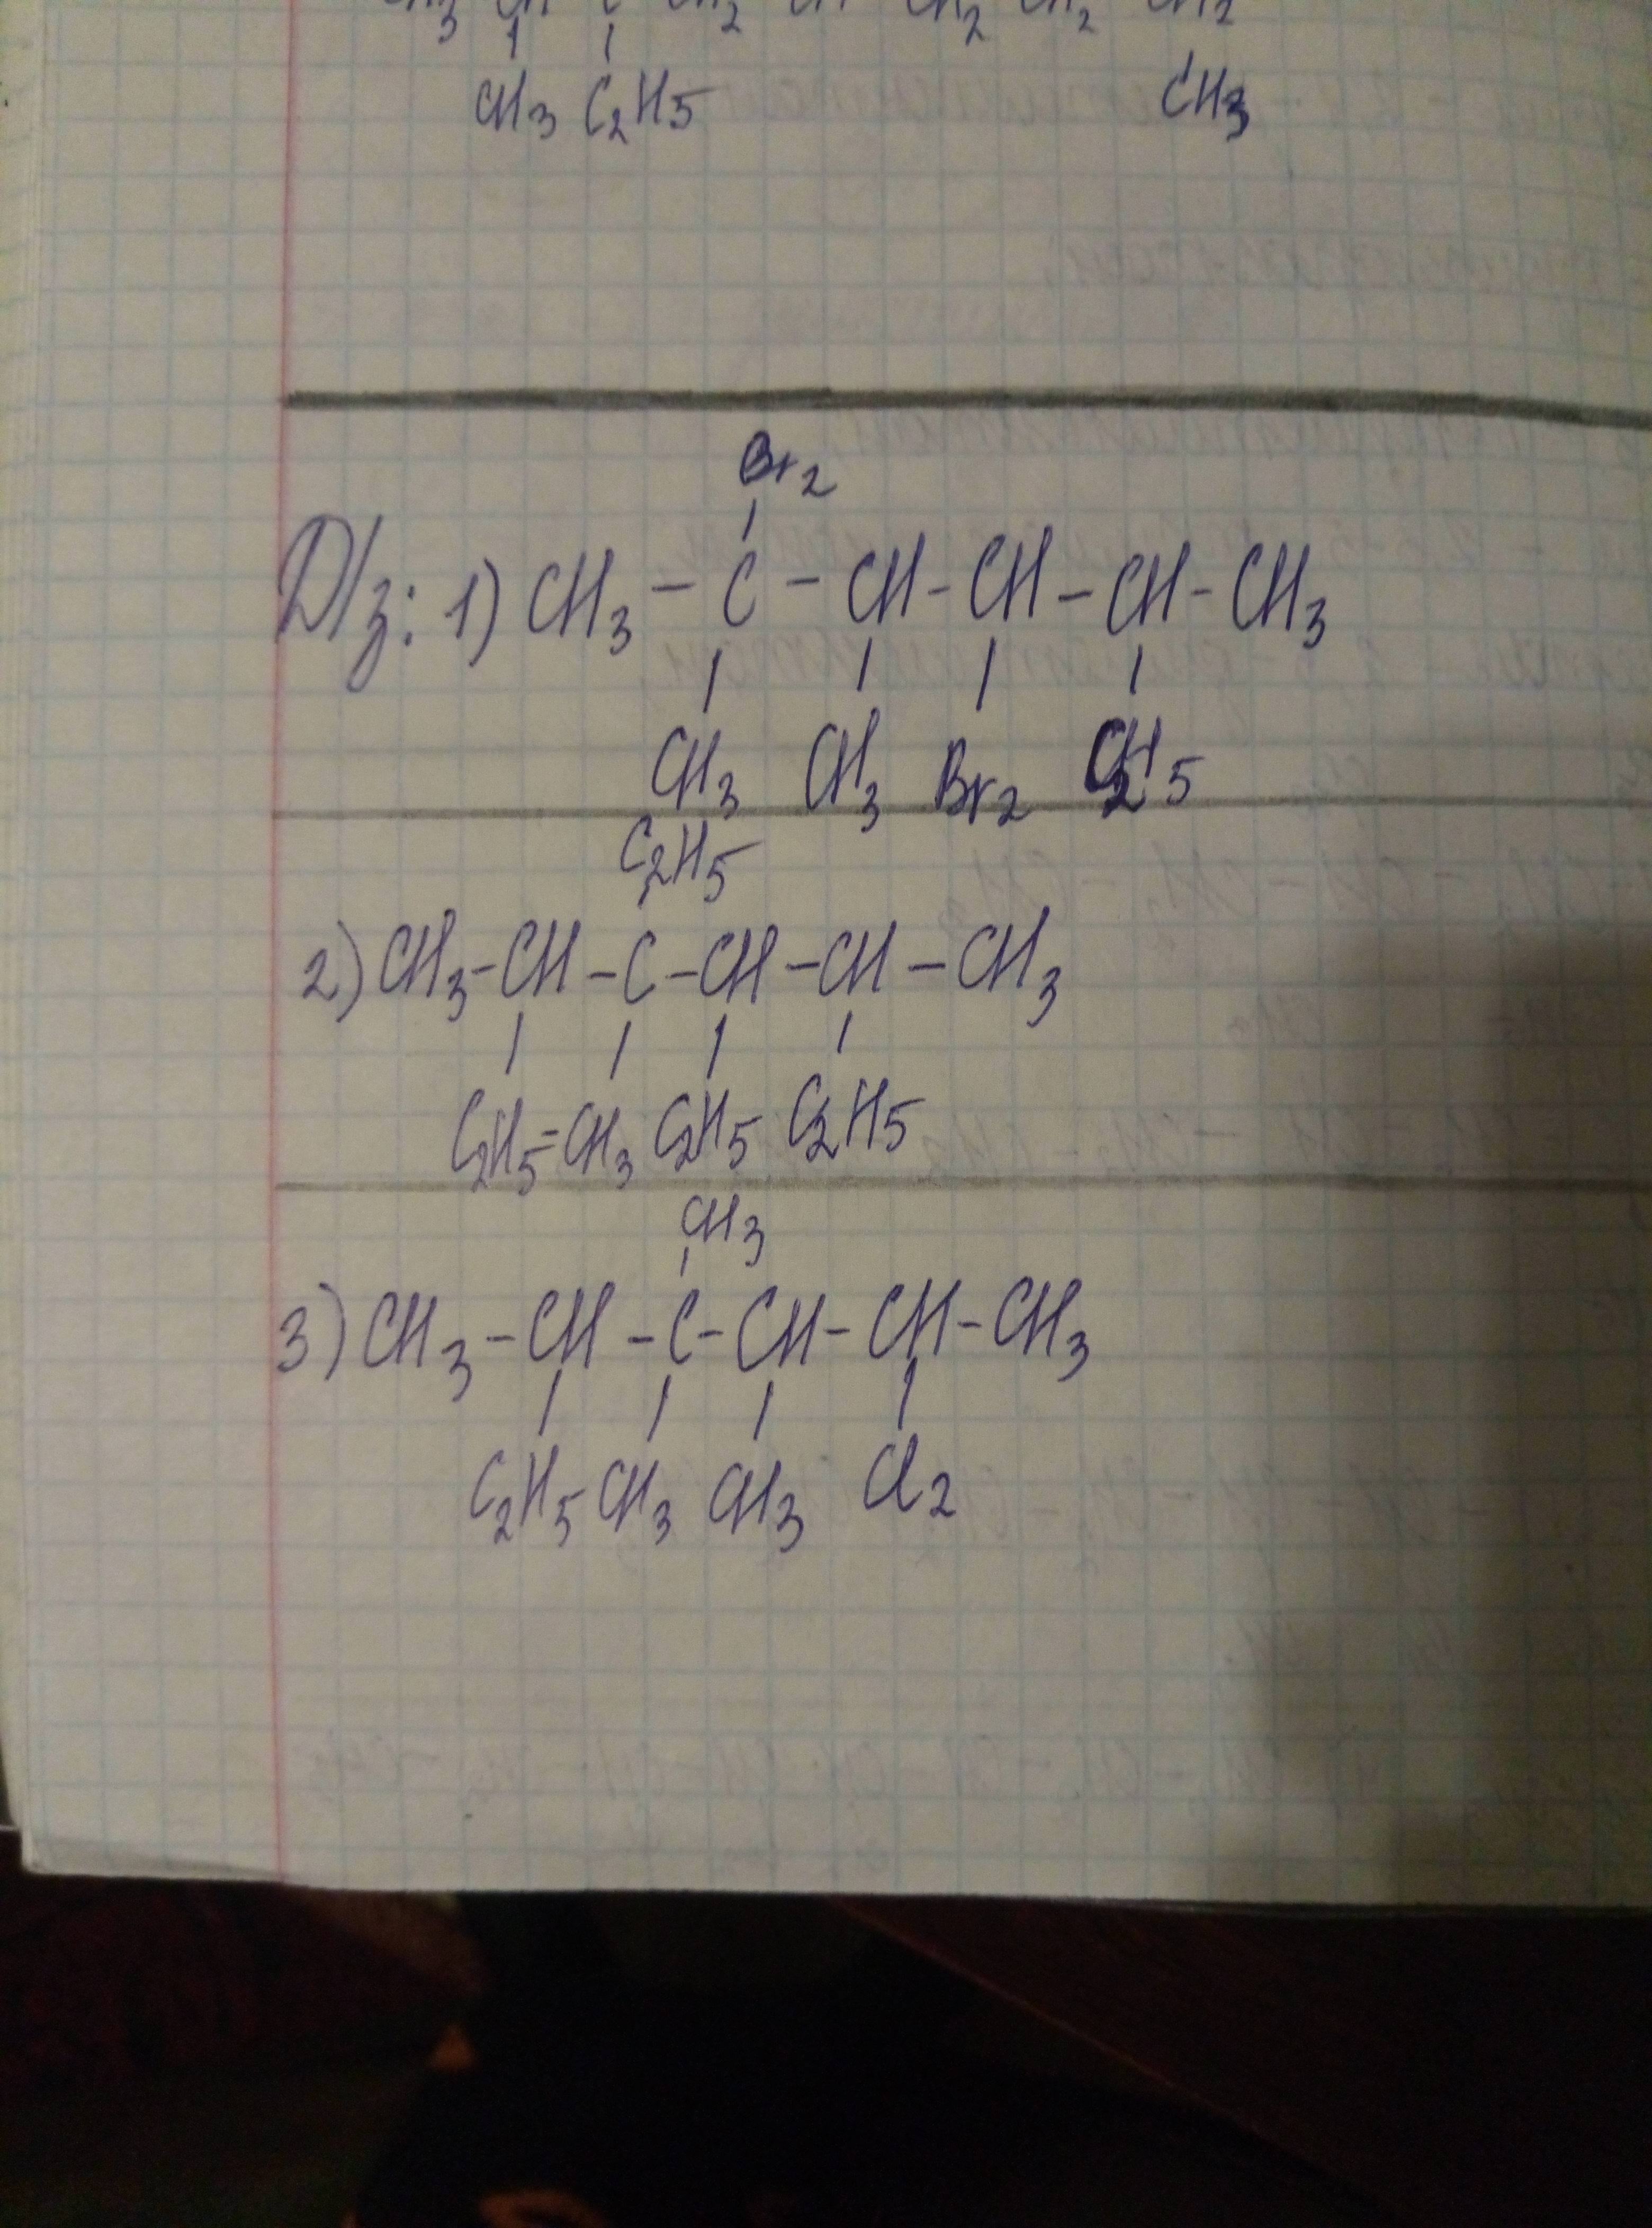 CH3 C2H5 CH3
Br2
D/з: 1) CH3 - C - CH - CH - CH - CH3
CH3 CH3 Br2 C2H5
C2H5
2) CH3 - CH - C - CH - CH - CH3
C2H5 = CH3 C2H5 C2H5
CH3
3) CH3 - CH - C - CH - CH - CH3
C2H5 CH3 CH3 Cl2